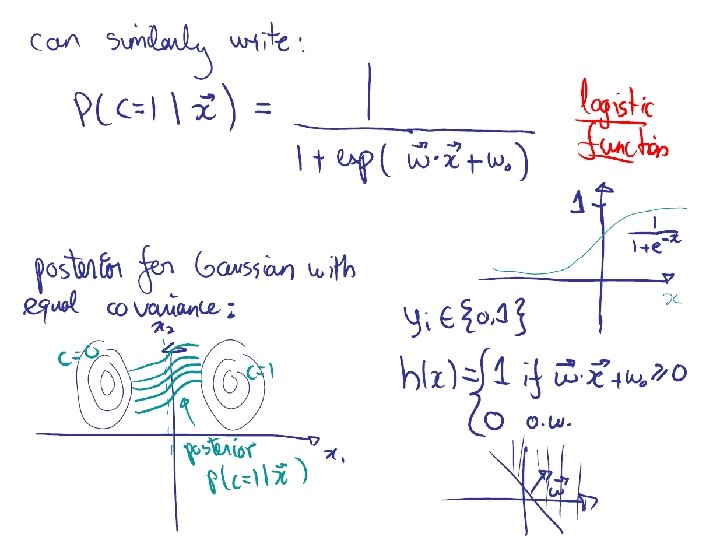 can similarly write:
P(c=1 | x⃗) = 1 / 1 + exp( w⃗·x⃗ + w₀)
logistic
function
1
1 / 1+e^-x
x
posterior for Gaussian with
equal covariance:
x₂
c=0
c=1
posterior
p(c=1|x⃗)
x₁
yᵢ ∈ {0,1}
h(x) = { 1 if w⃗·x⃗ + w₀ ≥ 0
0 o.w.
w⃗